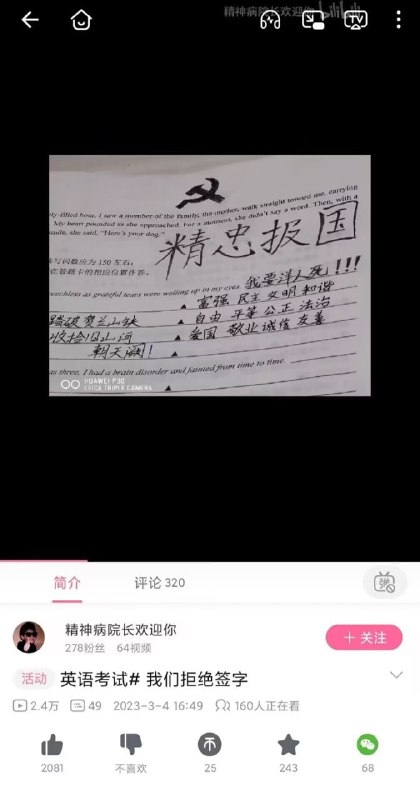 精神病院长欢迎你 bilibili
TV
ly-filled hose, I saw a member of the family, the mother, walk straight toward me, carrying
My heart pounded as she approached. For a moment, she didn't say a word. Then, with a
smile, she said, "Here's your dog."
精忠报国
写词数应为 150 左右;
在答题卡的相应位置作答。
speechless as grateful tears were welling up in my eyes.
我要洋人死!!!
富强 民主 文明 和谐
踏破贺兰山缺
自由 平等 公正 法治
收拾旧山河
爱国 敬业 诚信 友善
朝天阙!
as three, I had a brain disorder and fainted from time to time.
HUAWEI P30
LEICA TRIPLE CAMERA
简介
评论 320
弹
精神病院长欢迎你
278粉丝 64视频
+ 关注
活动 英语考试# 我们拒绝签字
2.4万 49 2023-3-4 16:49 160人正在看
2081 不喜欢 25 243 68